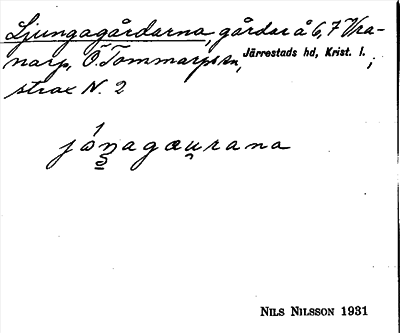 Ljungagårdarna, gårdar å 6, 7 Vra-
narp, Ö. Tommarps sn, Järrestads hd, Krist. l. ;
strax N. 2
jóṉagæu̯rana
NILS NILSSON 1931